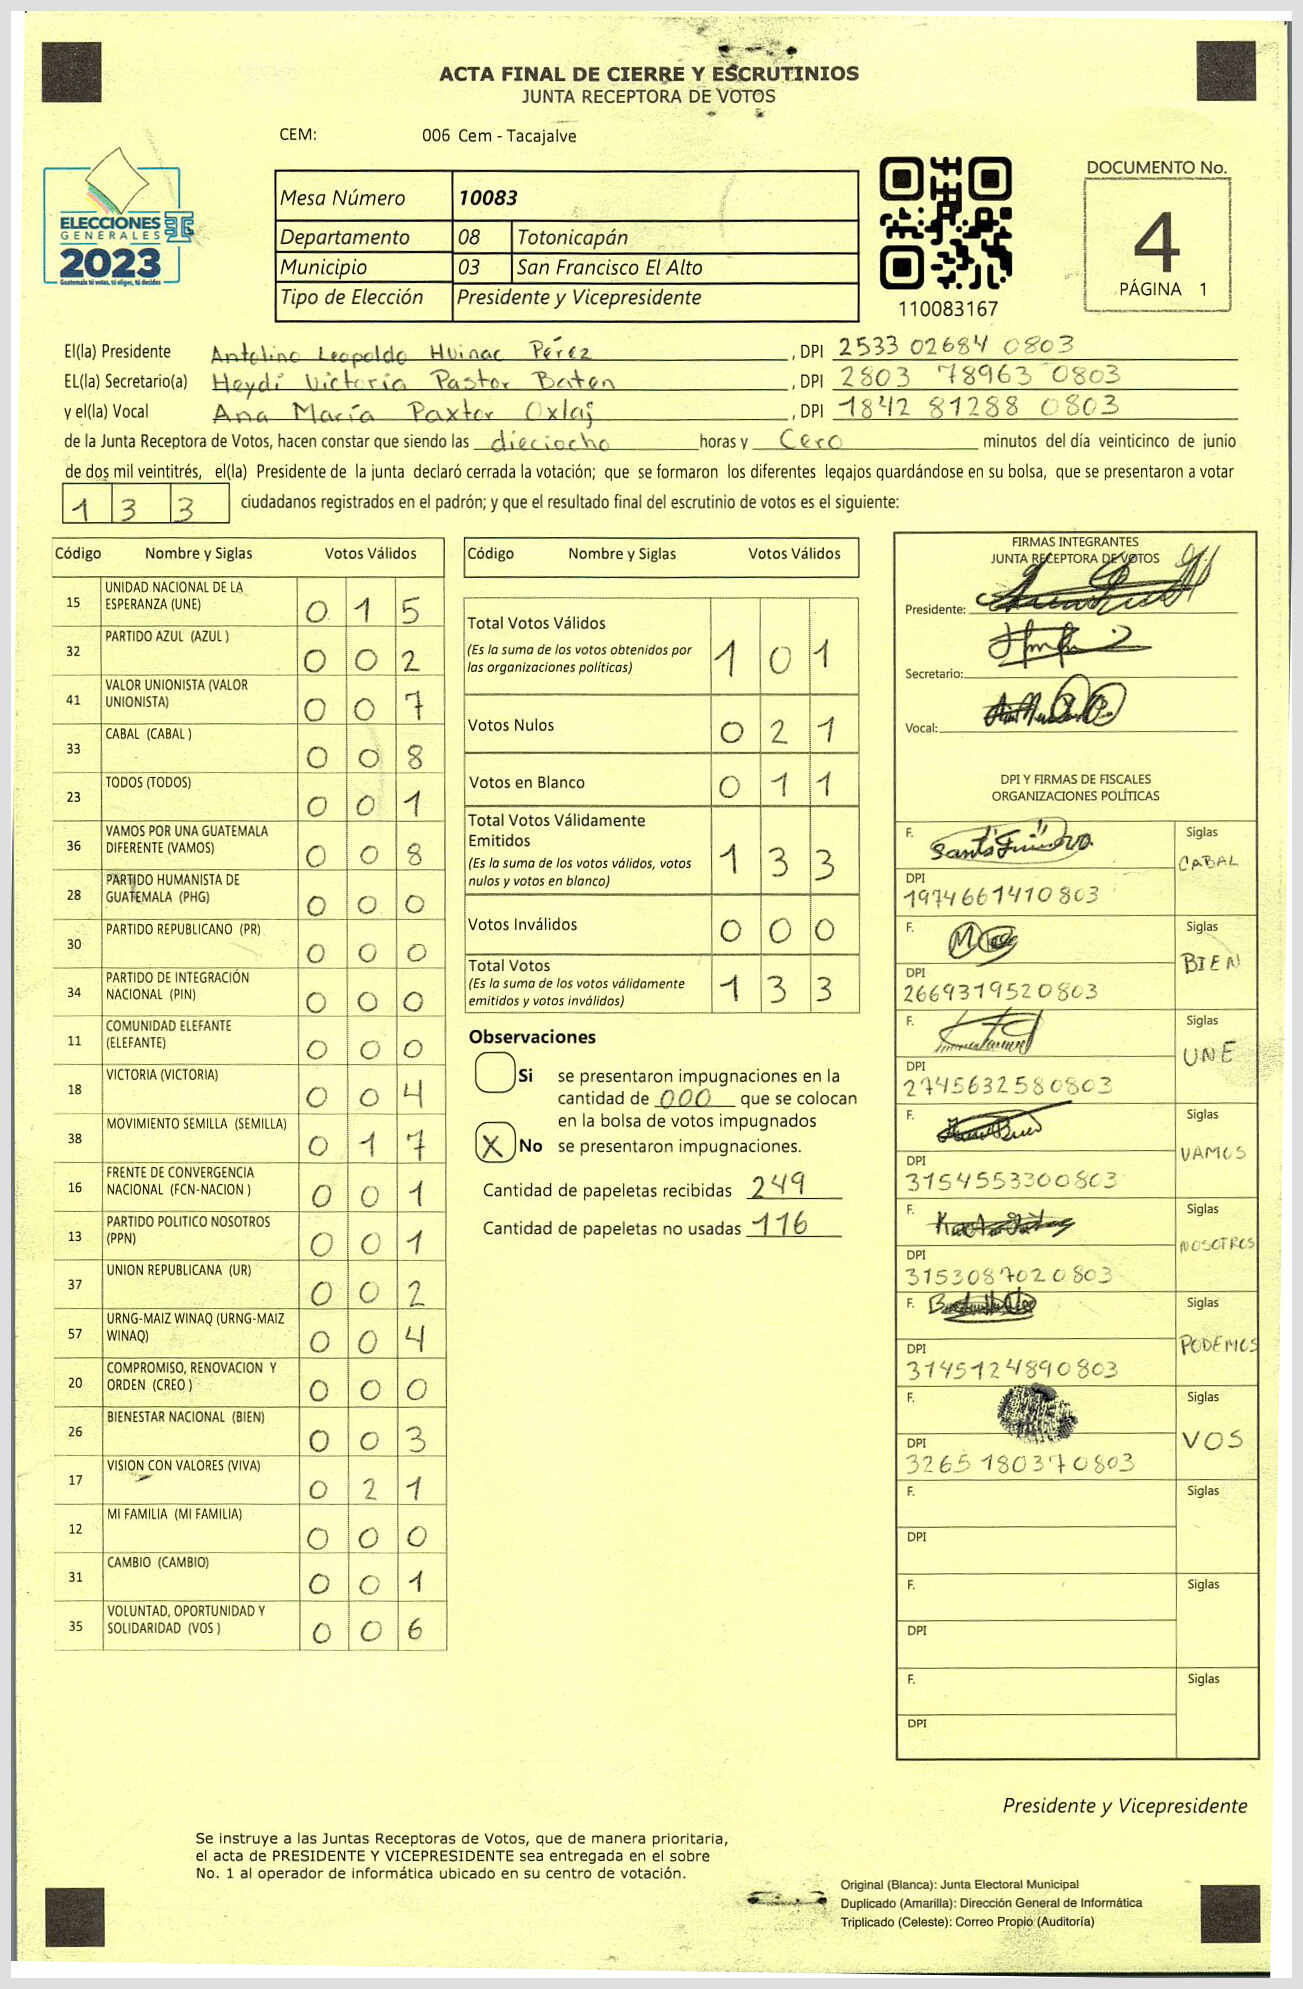 ACTA FINAL DE CIERRE Y ESCRUTINIOS
JUNTA RECEPTORA DE VOTOS
CEM: 006 Cem - Tacajalve
ELECCIONES
GENERALES
2023
Guatemala tú votas, tú eliges, tú decides
Mesa Número 10083
Departamento 08 Totonicapán
Municipio 03 San Francisco El Alto
Tipo de Elección Presidente y Vicepresidente
110083167
DOCUMENTO No.
4
PÁGINA 1
El(la) Presidente Antolino Leopoldo Huinac Pérez , DPI 2533 02684 0803
EL(la) Secretario(a) Heydi Victoria Pastor Baten , DPI 2803 78963 0803
y el(la) Vocal Ana María Paxtor Oxlaj , DPI 1842 81288 0803
de la Junta Receptora de Votos, hacen constar que siendo las dieciocho horas y Cero minutos del día veinticinco de junio
de dos mil veintitrés, el(la) Presidente de la junta declaró cerrada la votación; que se formaron los diferentes legajos quardándose en su bolsa, que se presentaron a votar
1 3 3 ciudadanos registrados en el padrón; y que el resultado final del escrutinio de votos es el siguiente:
Código Nombre y Siglas Votos Válidos
15 UNIDAD NACIONAL DE LA
ESPERANZA (UNE) 0 1 5
32 PARTIDO AZUL (AZUL ) 0 0 2
41 VALOR UNIONISTA (VALOR
UNIONISTA) 0 0 7
33 CABAL (CABAL ) 0 0 8
23 TODOS (TODOS) 0 0 1
36 VAMOS POR UNA GUATEMALA
DIFERENTE (VAMOS) 0 0 8
28 PARTIDO HUMANISTA DE
GUATEMALA (PHG) 0 0 0
30 PARTIDO REPUBLICANO (PR) 0 0 0
34 PARTIDO DE INTEGRACIÓN
NACIONAL (PIN) 0 0 0
11 COMUNIDAD ELEFANTE
(ELEFANTE) 0 0 0
18 VICTORIA (VICTORIA) 0 0 4
38 MOVIMIENTO SEMILLA (SEMILLA) 0 1 7
16 FRENTE DE CONVERGENCIA
NACIONAL (FCN-NACION ) 0 0 1
13 PARTIDO POLITICO NOSOTROS
(PPN) 0 0 1
37 UNION REPUBLICANA (UR) 0 0 2
57 URNG-MAIZ WINAQ (URNG-MAIZ
WINAQ) 0 0 4
20 COMPROMISO, RENOVACION Y
ORDEN (CREO ) 0 0 0
26 BIENESTAR NACIONAL (BIEN) 0 0 3
17 VISION CON VALORES (VIVA) 0 2 1
12 MI FAMILIA (MI FAMILIA) 0 0 0
31 CAMBIO (CAMBIO) 0 0 1
35 VOLUNTAD, OPORTUNIDAD Y
SOLIDARIDAD (VOS ) 0 0 6
Código Nombre y Siglas Votos Válidos
Total Votos Válidos
(Es la suma de los votos obtenidos por
las organizaciones políticas) 1 0 1
Votos Nulos 0 2 1
Votos en Blanco 0 1 1
Total Votos Válidamente
Emitidos
(Es la suma de los votos válidos, votos
nulos y votos en blanco) 1 3 3
Votos Inválidos 0 0 0
Total Votos
(Es la suma de los votos válidamente
emitidos y votos inválidos) 1 3 3
Observaciones
Si se presentaron impugnaciones en la
cantidad de 000 que se colocan
en la bolsa de votos impugnados
X No se presentaron impugnaciones.
Cantidad de papeletas recibidas 249
Cantidad de papeletas no usadas 116
FIRMAS INTEGRANTES
JUNTA RECEPTORA DE VOTOS
Presidente:
Secretario:
Vocal:
DPI Y FIRMAS DE FISCALES
ORGANIZACIONES POLÍTICAS
F. Siglas
CABAL
DPI
1974661410803
F. Siglas
BIEN
DPI
2669319520803
F. Siglas
UNE
DPI
2745632580803
F. Siglas
VAMOS
DPI
3154553300803
F. Siglas
NOSOTROS
DPI
3153087020803
F. Siglas
PODEMOS
DPI
3145124890803
F. Siglas
VOS
DPI
3265180370803
F. Siglas
DPI
F. Siglas
DPI
F. Siglas
DPI
Presidente y Vicepresidente
Se instruye a las Juntas Receptoras de Votos, que de manera prioritaria,
el acta de PRESIDENTE Y VICEPRESIDENTE sea entregada en el sobre
No. 1 al operador de informática ubicado en su centro de votación.
Original (Blanca): Junta Electoral Municipal
Duplicado (Amarilla): Dirección General de Informática
Triplicado (Celeste): Correo Propio (Auditoría)